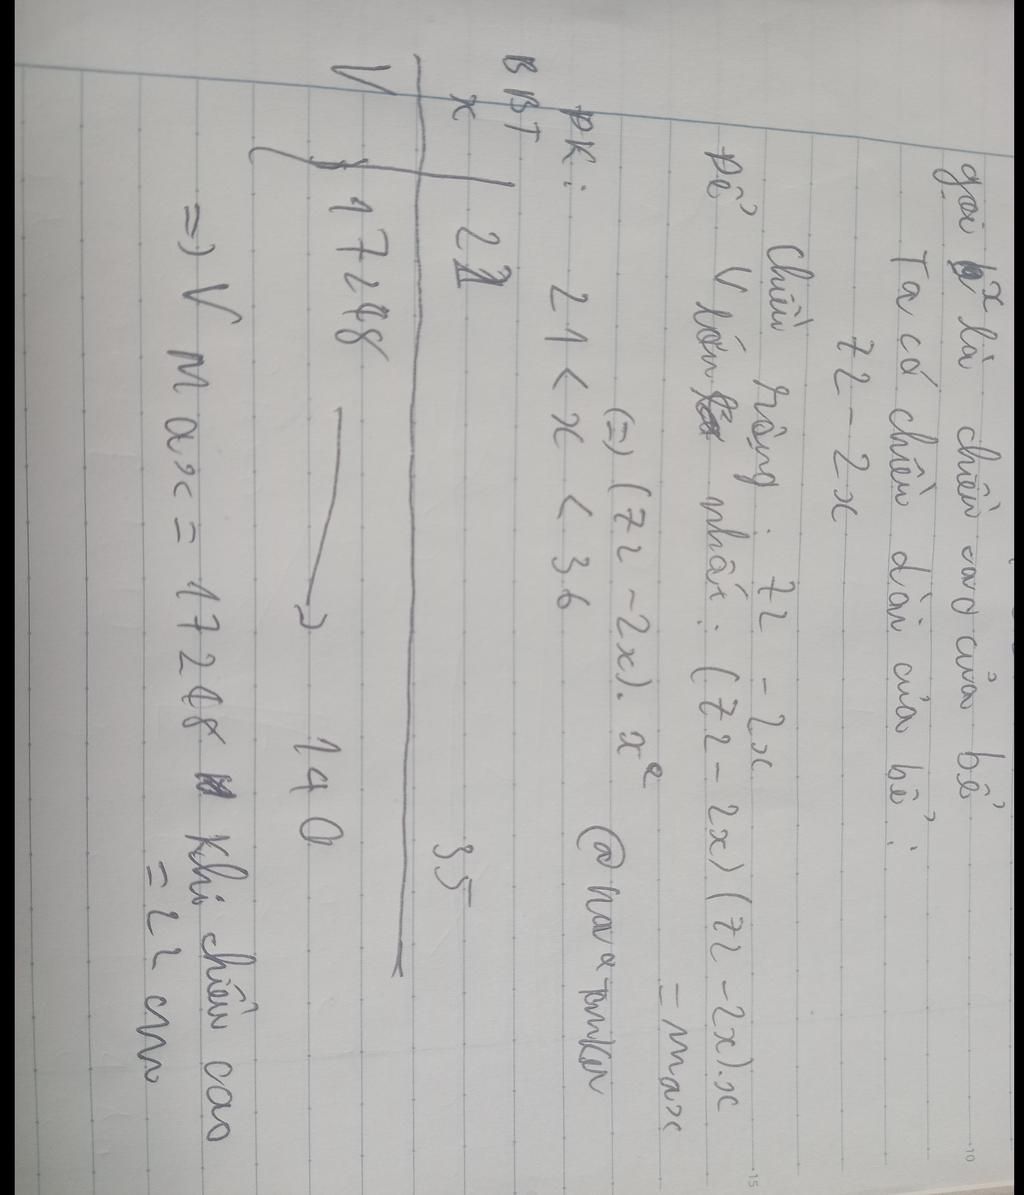 gọi x là chiều cao của bể
Ta có chiều dài của bể:
72 - 2x
Chiều rộng: 72 - 2x
Để V lớn nhất: (72 - 2x)(72 - 2x).x
= max
(=) (72 - 2x).x²
ĐK: 21 < x < 36
BBT
x 22 35
V 17248 140
=) V Max = 17248 khi chiều cao
= 22 cm
10
15